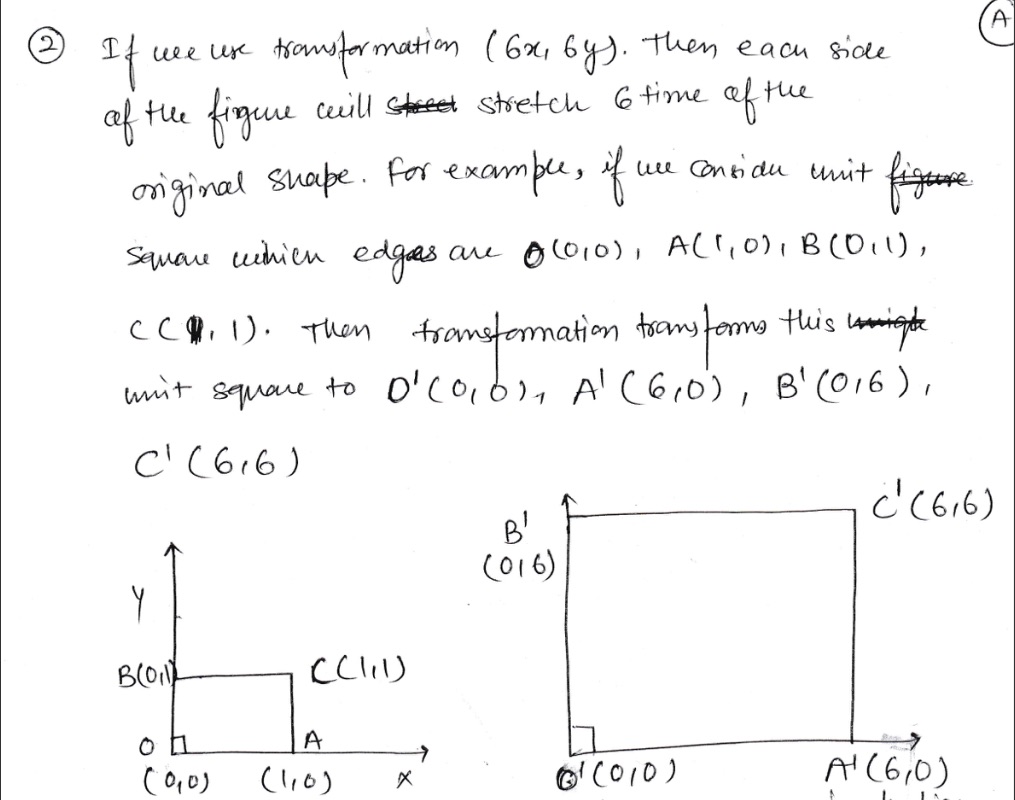 A
② If we use transformation (6x, 6y). Then each side
of the figure will stretch 6 time of the
original shape. For example, if we consider unit figure
square which edges are O(0,0), A(1,0), B(0,1),
C(1,1). Then transformation transforms this
unit square to O'(0,0), A'(6,0), B'(0,6),
C'(6,6)
B' C'(6,6)
(0,6)
Y
B(0,1) C(1,1)
O A
(0,0) (1,0) X O'(0,0) A'(6,0)